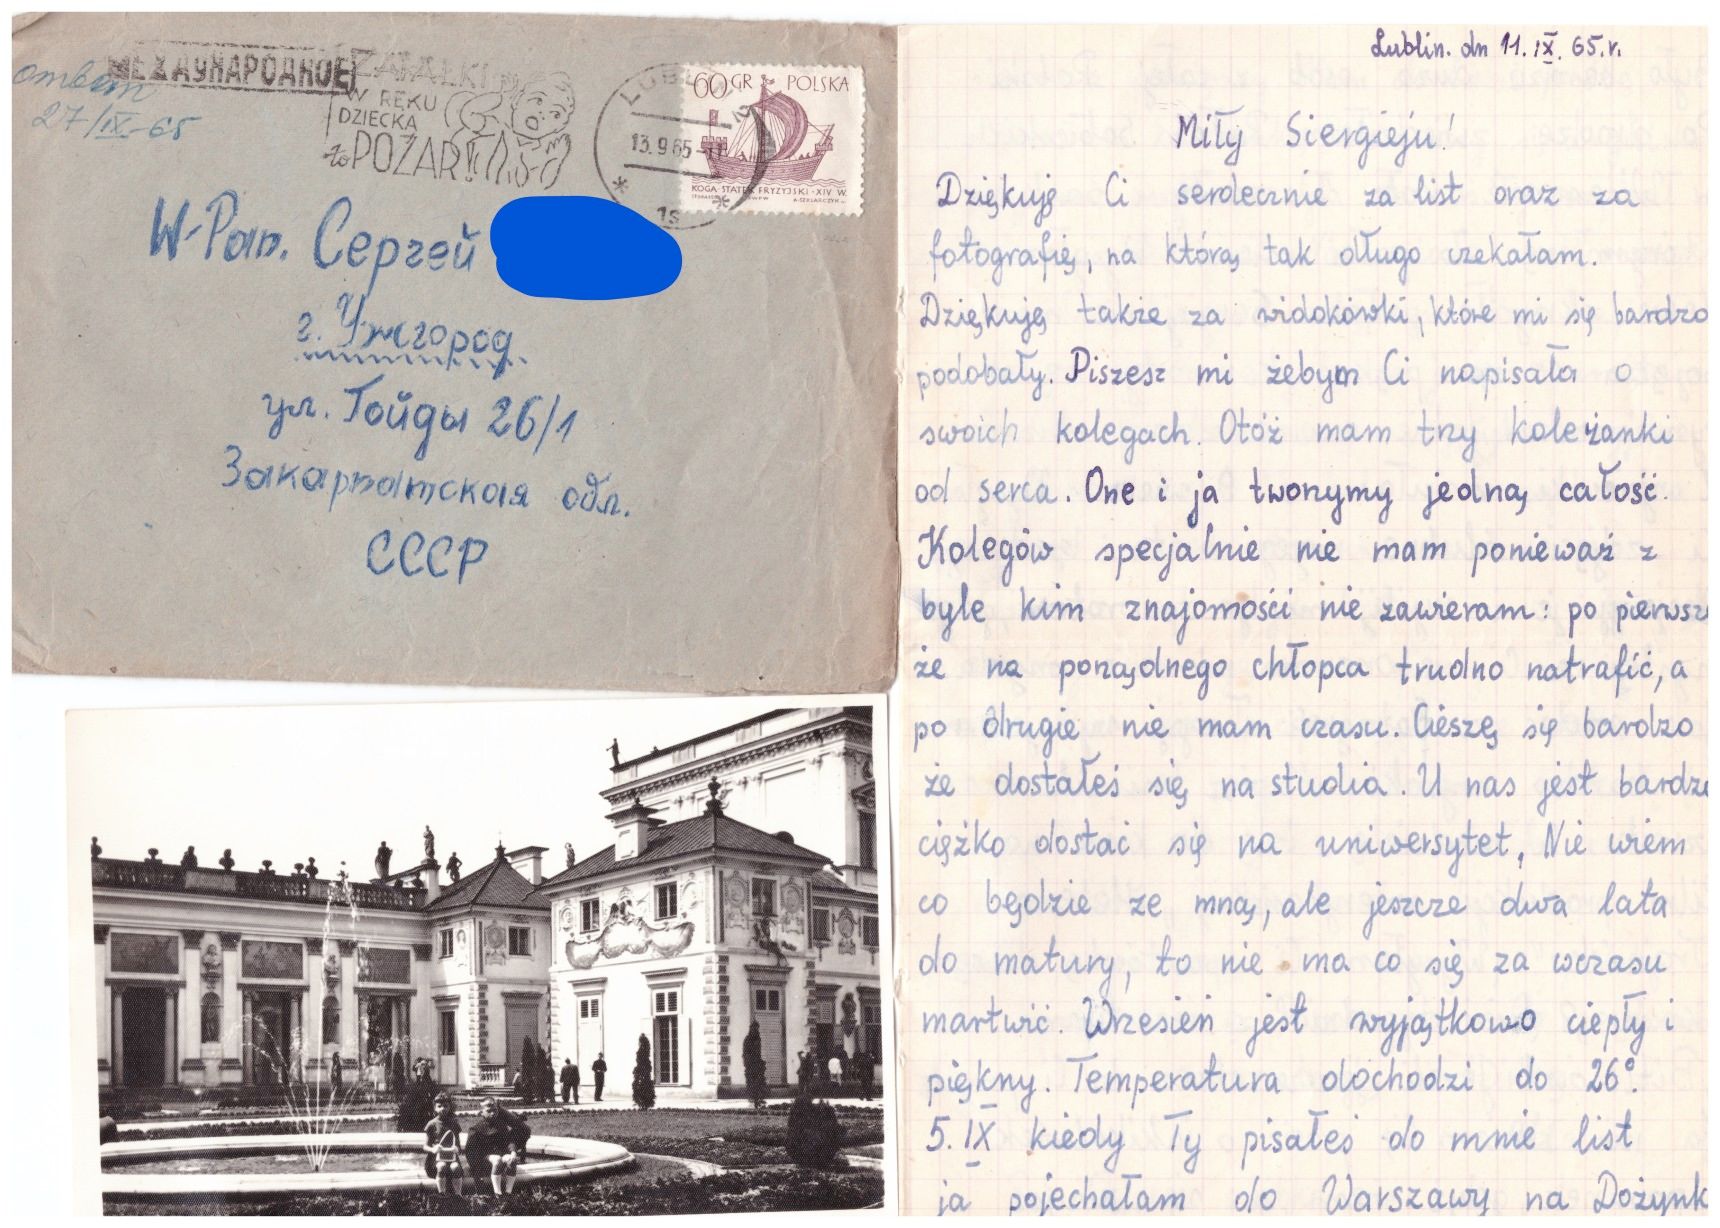 МЕЖДУНАРОДНОЕ
ZAPAŁKI
W RĘKU
DZIECKA
to POŻAR!!
27/IX-65
LUBLIN 2
13.9.65
60 GR POLSKA
KOGA-STATEK FRYZYJSKI-XIV W.
W-Pan. Сергей
г. Ужгород
ул. Гойды 26/1
Закарпатская обл.
СССР
Lublin. dn 11.IX.65.r.
Miły Siergieju!
Dziękuję Ci serdecznie za list oraz za
fotografię, na którą tak długo czekałam.
Dziękuję także za widokówki, które mi się bardzo
podobały. Piszesz mi żebym Ci napisała o
swoich kolegach. Otóż mam trzy koleżanki
od serca. One i ja tworzymy jedną całość.
Kolegów specjalnie nie mam ponieważ z
byle kim znajomości nie zawieram: po pierwsze
że na porządnego chłopca trudno natrafić, a
po drugie nie mam czasu. Cieszę się bardzo
że dostałeś się na studia. U nas jest bardzo
ciężko dostać się na uniwersytet. Nie wiem
co będzie ze mną, ale jeszcze dwa lata
do matury, to nie ma co się za wczasu
martwić. Wrzesień jest wyjątkowo ciepły i
piękny. Temperatura dochodzi do 26°.
5.IX kiedy Ty pisałeś do mnie list
ja pojechałam do Warszawy na Dożynk